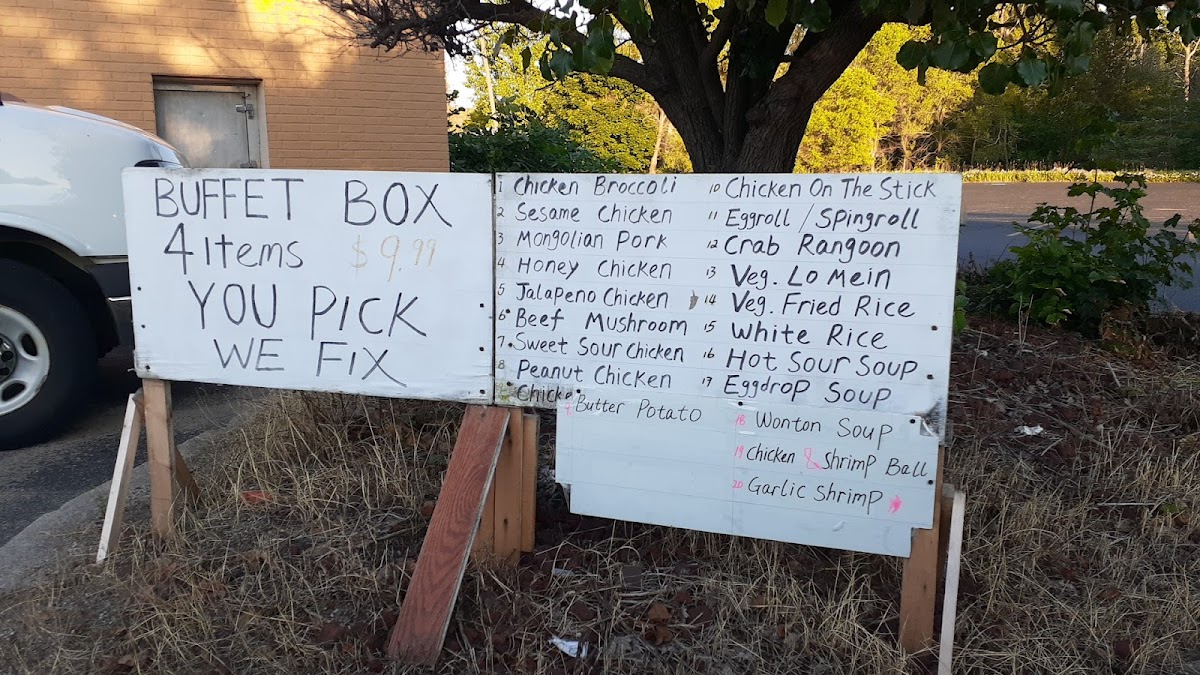 BUFFET BOX
4 Items $9.99
YOU PICK
WE FIX
1 Chicken Broccoli
2 Sesame Chicken
3 Mongolian Pork
4 Honey Chicken
5 Jalapeno Chicken
6 Beef Mushroom
7 Sweet Sour Chicken
8 Peanut Chicken
Chicke
9 Butter Potato
10 Chicken On The Stick
11 Eggroll / Spingroll
12 Crab Rangoon
13 Veg. Lo Mein
14 Veg. Fried Rice
15 White Rice
16 Hot Sour Soup
17 Eggdrop Soup
18 Wonton Soup
19 Chicken & Shrimp Ball
20 Garlic Shrimp